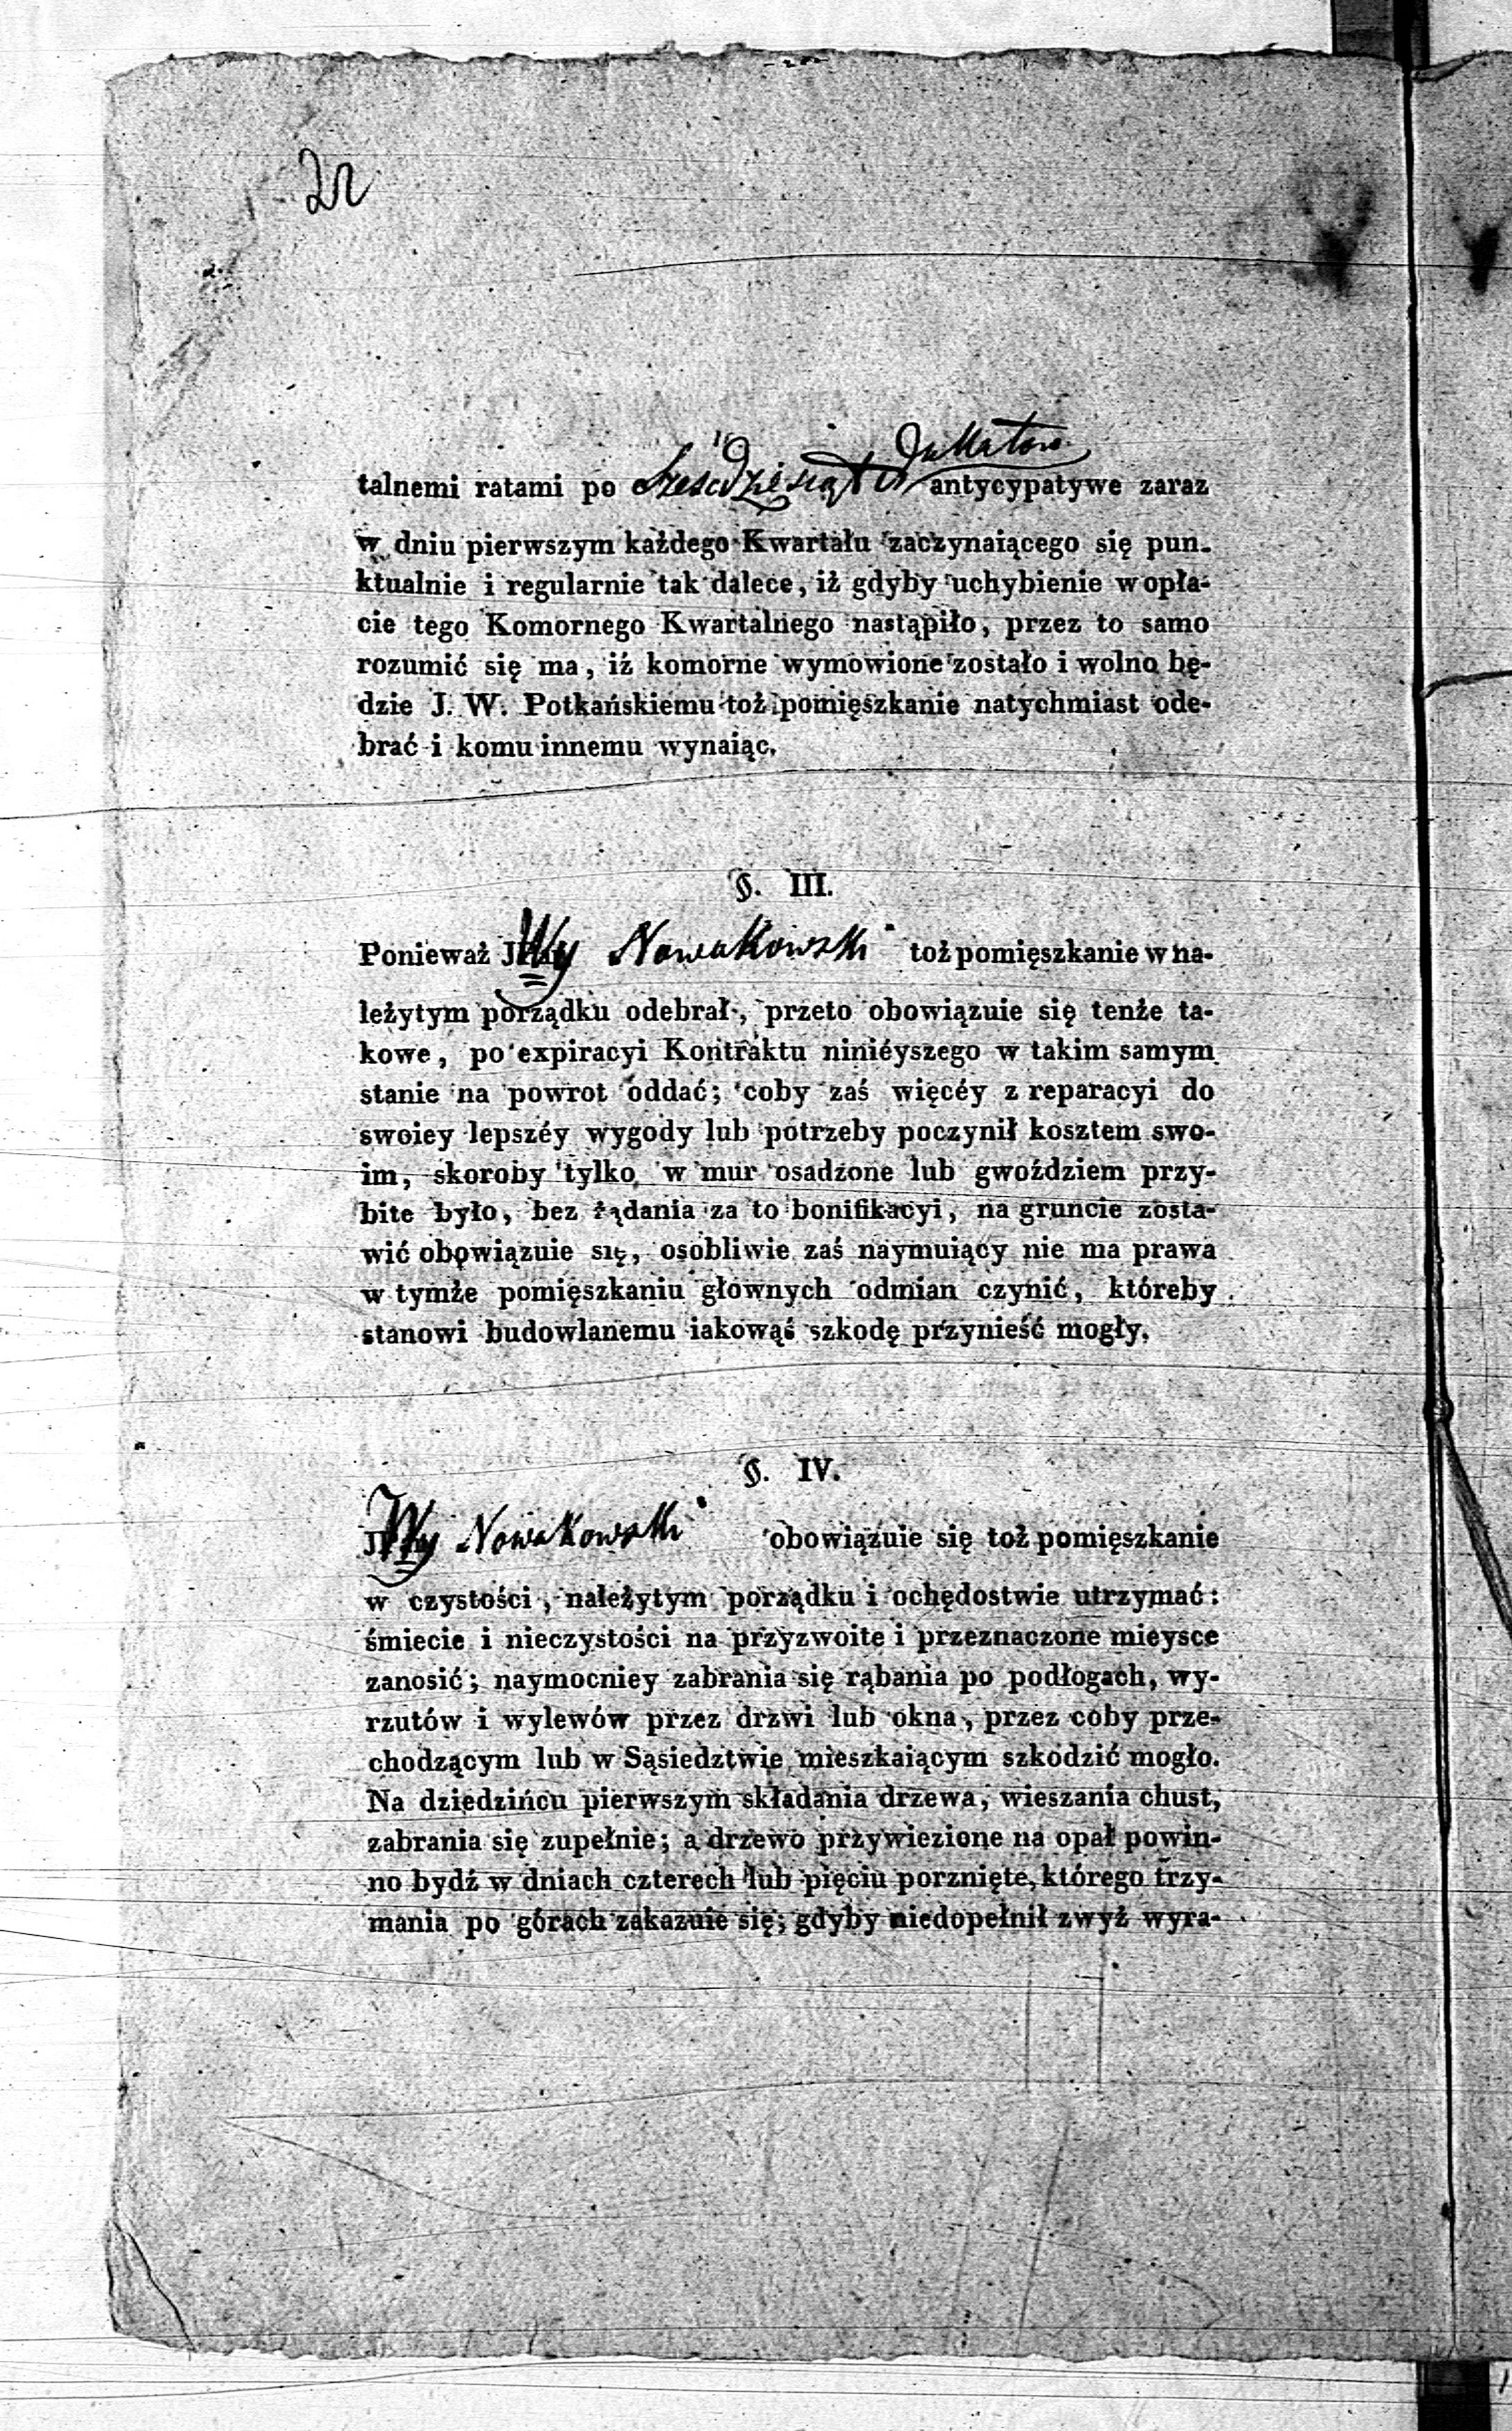 talnemi ratami po Sześćdziesiąt Dukatow antycypatywe zaraz
w dniu pierwszym każdego Kwartału zaczynaiącego się pun-
ktualnie i regularnie tak dalece, iż gdyby uchybienie w opła-
cie tego Komornego Kwartalnego nastąpiło, przez to samo
rozumić się ma, iż komorne wymowione zostało i wolno bę-
dzie J. W. Potkańskiemu toż pomięszkanie natychmiast ode-
brać i komu innemu wynaiąc.
§. III.
Ponieważ JWy Nowakowski toż pomięszkanie w na-
leżytym porządku odebrał, przeto obowiązuie się tenże ta-
kowe, po expiracyi Kontraktu niniéyszego w takim samym
stanie na powrot oddać; coby zaś więcéy z reparacyi do
swoiey lepszéy wygody lub potrzeby poczynił kosztem swo-
im, skoroby tylko w mur osadzone lub gwoździem przy-
bite było, bez żądania za to bonifikacyi, na gruncie zosta-
wić obowiązuie się, osobliwie zaś naymuiący nie ma prawa
w tymże pomięszkaniu głownych odmian czynić, któreby
stanowi budowlanemu iakowąś szkodę przynieść mogły.
§. IV.
JWy Nowakowski obowiązuie się toż pomięszkanie
w czystości, należytym porządku i ochędostwie utrzymać:
śmiecie i nieczystości na przyzwoite i przeznaczone mieysce
zanosić; naymocniey zabrania się rąbania po podłogach, wy-
rzutów i wylewów przez drzwi lub okna, przez coby prze-
chodzącym lub w Sąsiedztwie mieszkaiącym szkodzić mogło.
Na dziedzińcu pierwszym składania drzewa, wieszania chust,
zabrania się zupełnie; a drzewo przywiezione na opał powin-
no bydź w dniach czterech lub pięciu porznięte, którego trzy-
mania po górach zakazuie się; gdyby niedopełnił zwyż wyra-